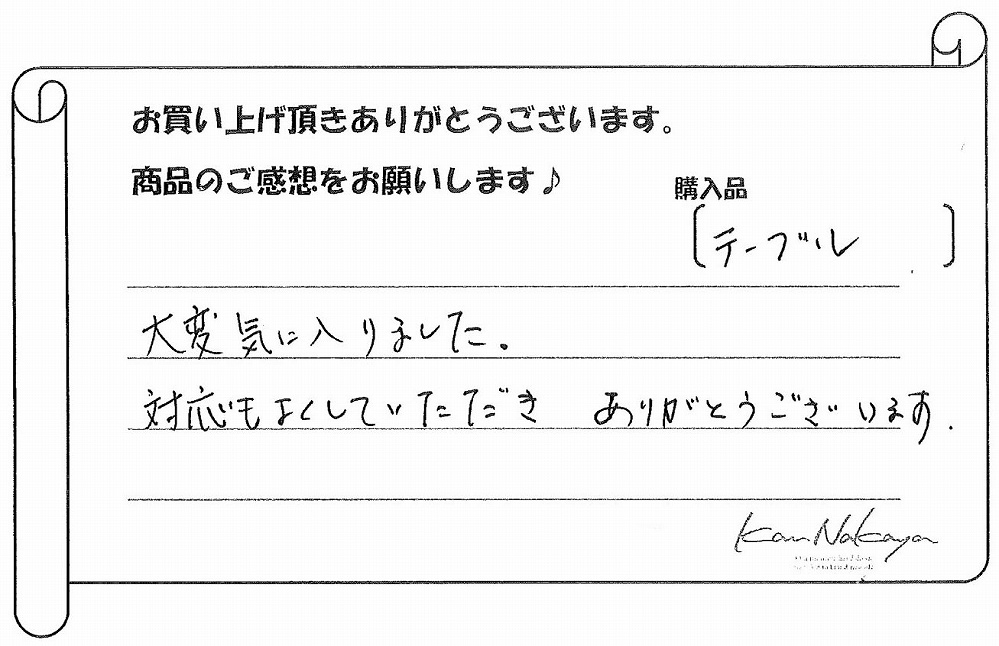 お買い上げ頂きありがとうございます。
商品のご感想をお願いします♪
購入品
〔テーブル 〕
大変気に入りました。
対応もよくしていただき ありがとうございます.
Kan Nakaya